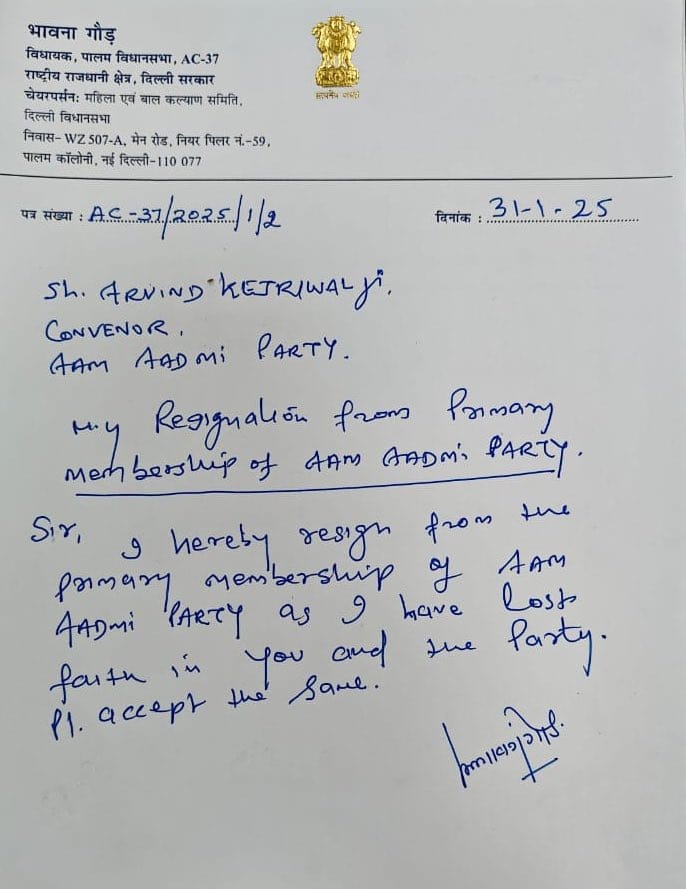 भावना गौड़
विधायक, पालम विधानसभा, AC-37
राष्ट्रीय राजधानी क्षेत्र, दिल्ली सरकार
चेयरपर्सन: महिला एवं बाल कल्याण समिति,
दिल्ली विधानसभा
निवास- WZ 507-A, मेन रोड, नियर पिलर नं.-59,
पालम कॉलोनी, नई दिल्ली-110 077
सत्यमेव जयते
पत्र संख्या : AC-37/2025/1/2
दिनांक : 31-1-25
Sh. ARVIND KEJRIWAL ji,
CONVENOR,
AAM AADMI PARTY.
My Resignation from Primary
membership of AAM AADMI PARTY.
Sir,
I hereby resign from the
primary membership of AAM
AADMI PARTY as I have lost
faith in you and the Party.
Pl. accept the same.